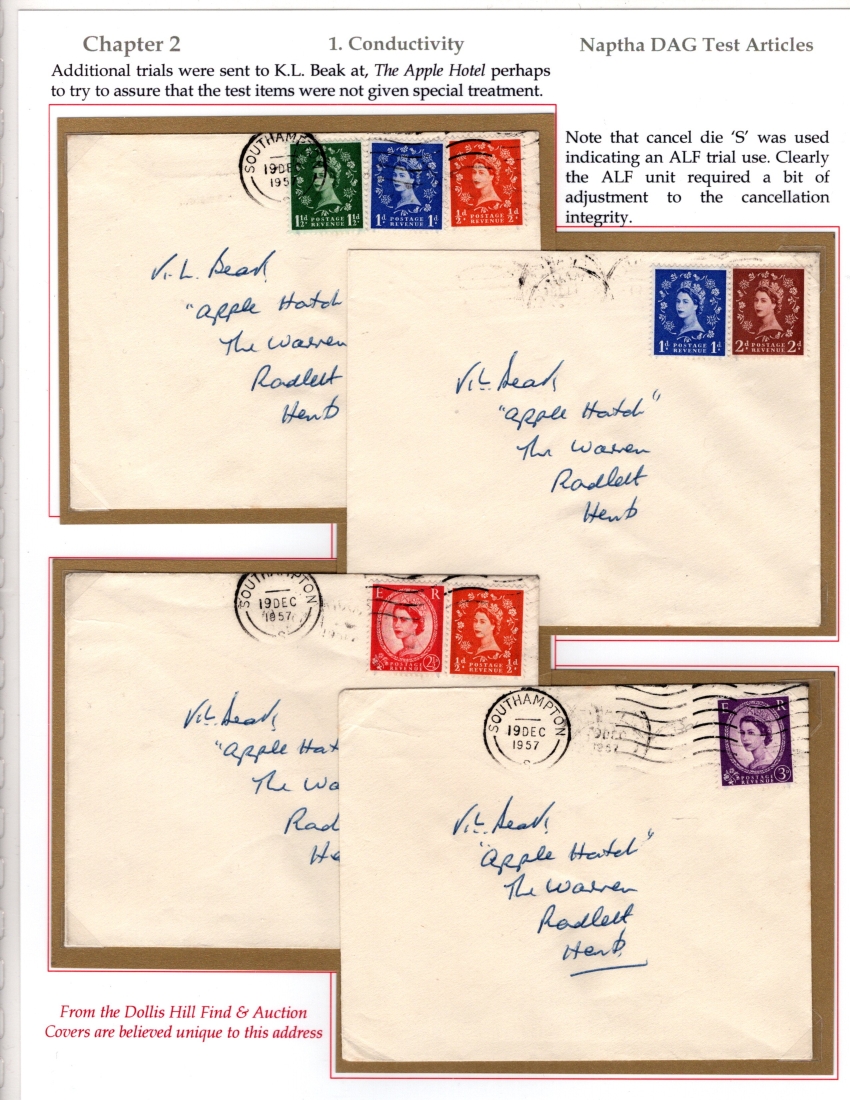 Chapter 2
1. Conductivity
Naptha DAG Test Articles
Additional trials were sent to K.L. Beak at, The Apple Hotel perhaps
to try to assure that the test items were not given special treatment.
Note that cancel die ‘S’ was used
indicating an ALF trial use. Clearly
the ALF unit required a bit of
adjustment to the cancellation
integrity.
SOUTHAMP
19 DEC
195
1½d POSTAGE REVENUE 1½d
1d POSTAGE REVENUE 1d
½d POSTAGE REVENUE ½d
V.L. Beak
"Apple Hatch
The Warren
Radlett
Herts
1d POSTAGE REVENUE 1d
2d POSTAGE REVENUE 2d
V.L. Beak
"Apple Hatch"
The Warren
Radlett
Herts
SOUTHAMPTON
19 DEC
1957
S
E R
POSTAGE REVENUE 2½d
½d POSTAGE REVENUE ½d
V.L. Beak
"Apple Hat
The Wa
Rad
He
SOUTHAMPTON
19 DEC
1957
S
19 DEC
1957
E R
POSTAGE REVENUE 3d
V.L. Beak
"Apple Hatch"
The Warren
Radlett
Herts
From the Dollis Hill Find & Auction
Covers are believed unique to this address